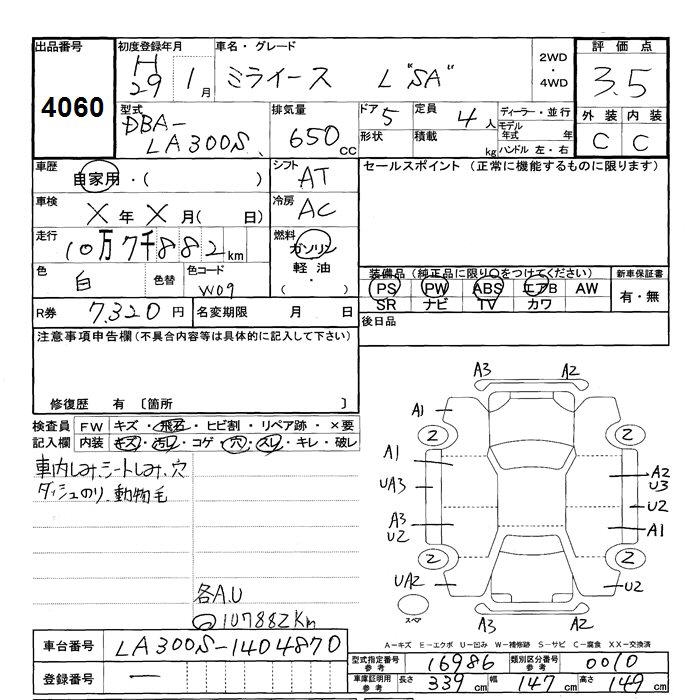 出品番号
4060
初度登録年月
H29 1月
車名・グレード
ミライース L "SA"
2WD
・
4WD
評価点
3.5
外装 内装
C C
型式
DBA-
LA300S
排気量
650 cc
ドア 5
形状
定員 4人
積載 kg
ディーラー・並行
モデル年式 年
ハンドル 左・右
車歴
自家用・( )
シフト
AT
セールスポイント (正常に機能するものに限ります)
車検
X年X月( 日)
冷房
AC
走行
10万7千882km
燃料
ガソリン
軽油・
( )
色
白
色替
色コード
W09
装備品(純正品に限り○をつけてください)
PS PW ABS エアB AW
SR ナビ TV カワ
新車保証書
有・無
R券 7,320円
名変期限 月 日
後日品
注意事項申告欄(不具合内容等は具体的に記入して下さい)
修復歴 有 〔箇所 〕
検査員記入欄
FW キズ・飛石・ヒビ割・リペア跡・×要
内装 キズ・汚レ・コゲ・穴・スレ・キレ・破レ
車内しみ、シートしみ、穴
ダッシュのり、動物毛
各A.U
107882Km
A3 A2
A1
2 2
A1
UA3
A2
U3
U2
A3
U2
A1
2 2
UA2
U2
スペア
A3 A2
A-キズ E-エクボ U-凹み W-補修跡 S-サビ C-腐食 XX-交換済
車台番号 LA300S-1404870
登録番号 —
型式指定番号参考 16986
類別区分番号参考 0010
車庫証明用参考 長さ 339cm 幅 147cm 高さ 149cm